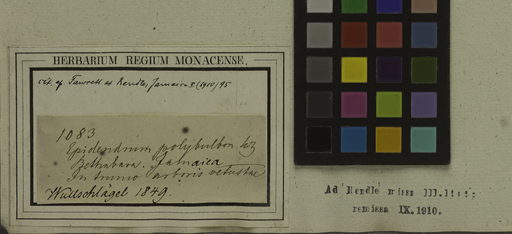 HERBARIUM REGIUM MONACENSE.
vid. op. Fawcett et Rendle, Jamaica I. (1910) 95
1083
Epidendrum polybulbon
Bethabara. Jamaica
In trunco arboris vetustae
Wullschlägel 1849.
Ad Rendle missa III.
remissa IX. 1910.